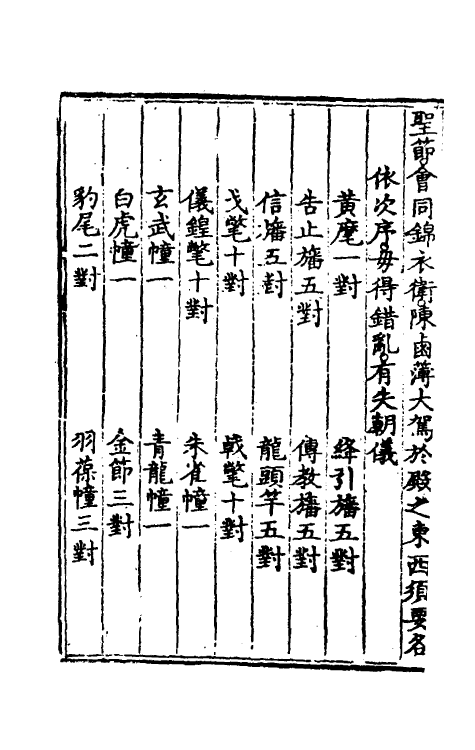 聖節會同錦衣衛陳鹵薄大駕於殿之東西須要名
依次序毋得錯亂有失朝儀
黃麾一對 絳引旛五對
告止旛五對 傳教旛五對
信旛五對 龍頭竿五對
戈氅十對 戟氅十對
儀鍠氅十對 朱雀幢一
玄武幢一 青龍幢一
白虎幢一 金節三對
豹尾二對 羽葆幢三對